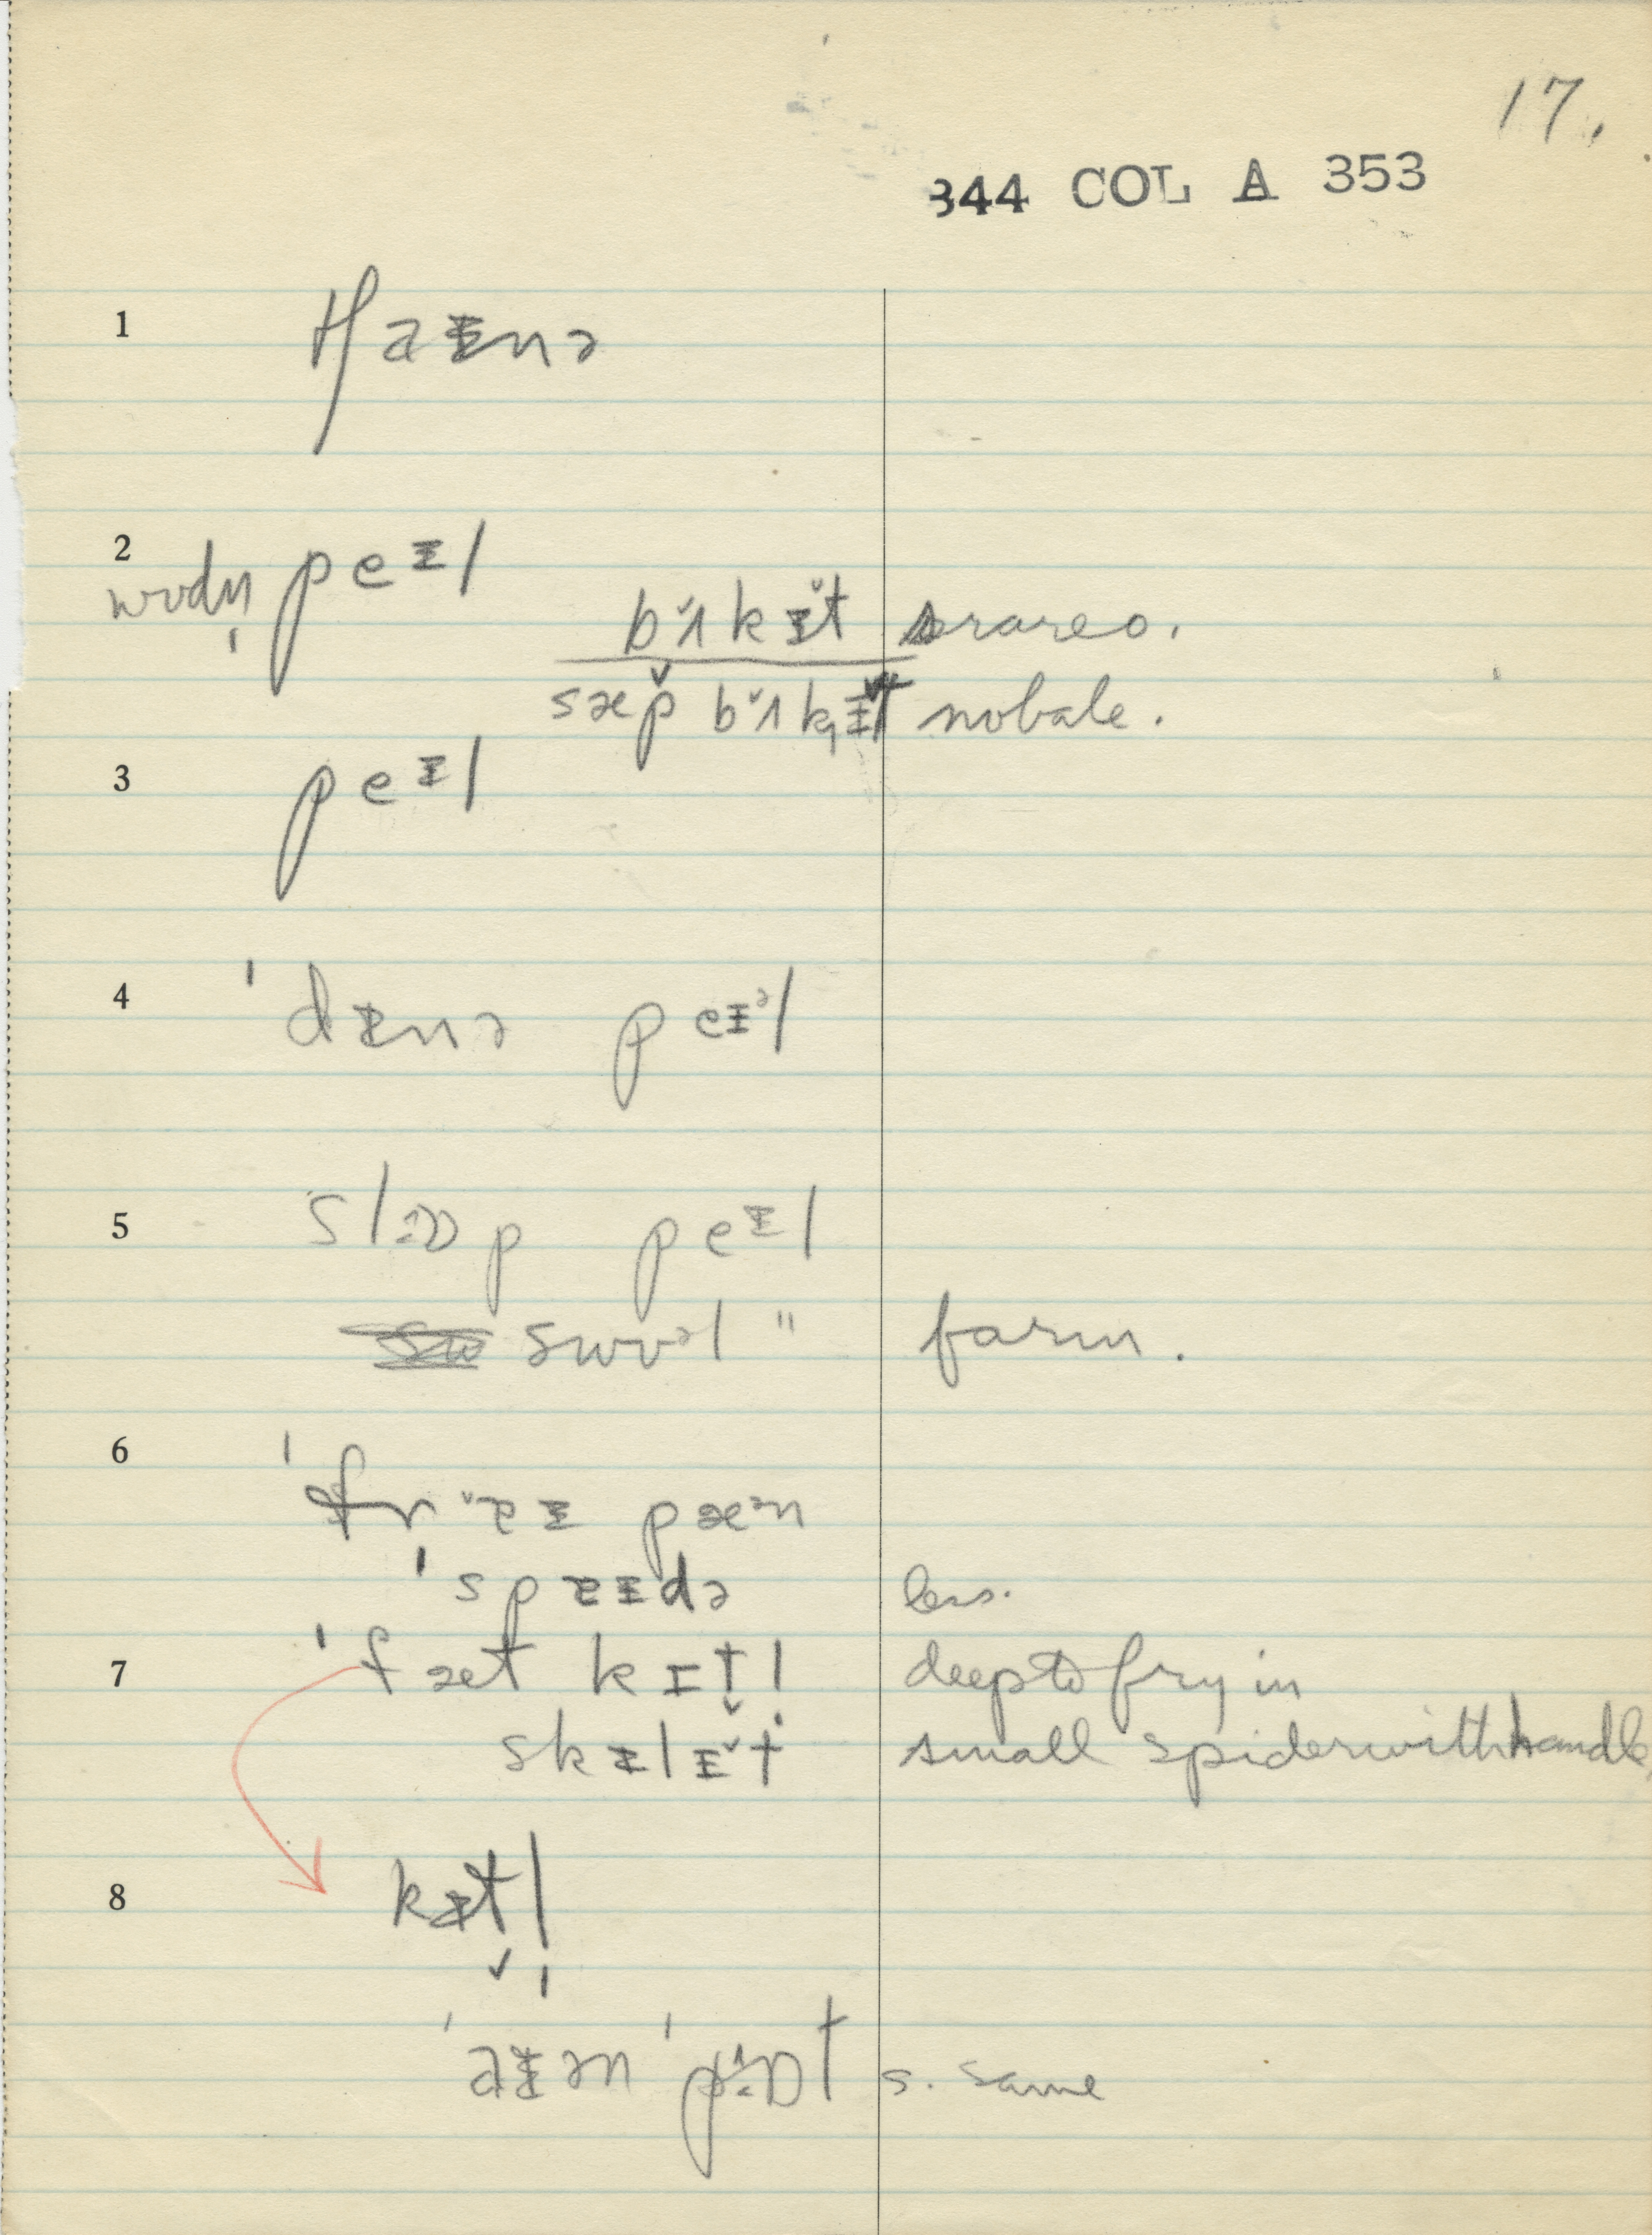 17.
344 COL A 353
1
2 peɪl
wʊdn̩
bʌ̆kɪ̆t
sæp̌ bʌ̆kɪ̆t nobale.
3 peɪl
4 ˈdɪnə peɪᵊl
5 slɒp peɪl
swɪl " farm.
6 ˈfrɐɪ pæᵊn
ˈspɐɪdə less.
7 ˈfæt kɪt̬l̩ deep to fry in
skɪlɪ̆t small spider with handle,
8 kɪt̬l̩
ˈaɪən ˈpɒt s. same